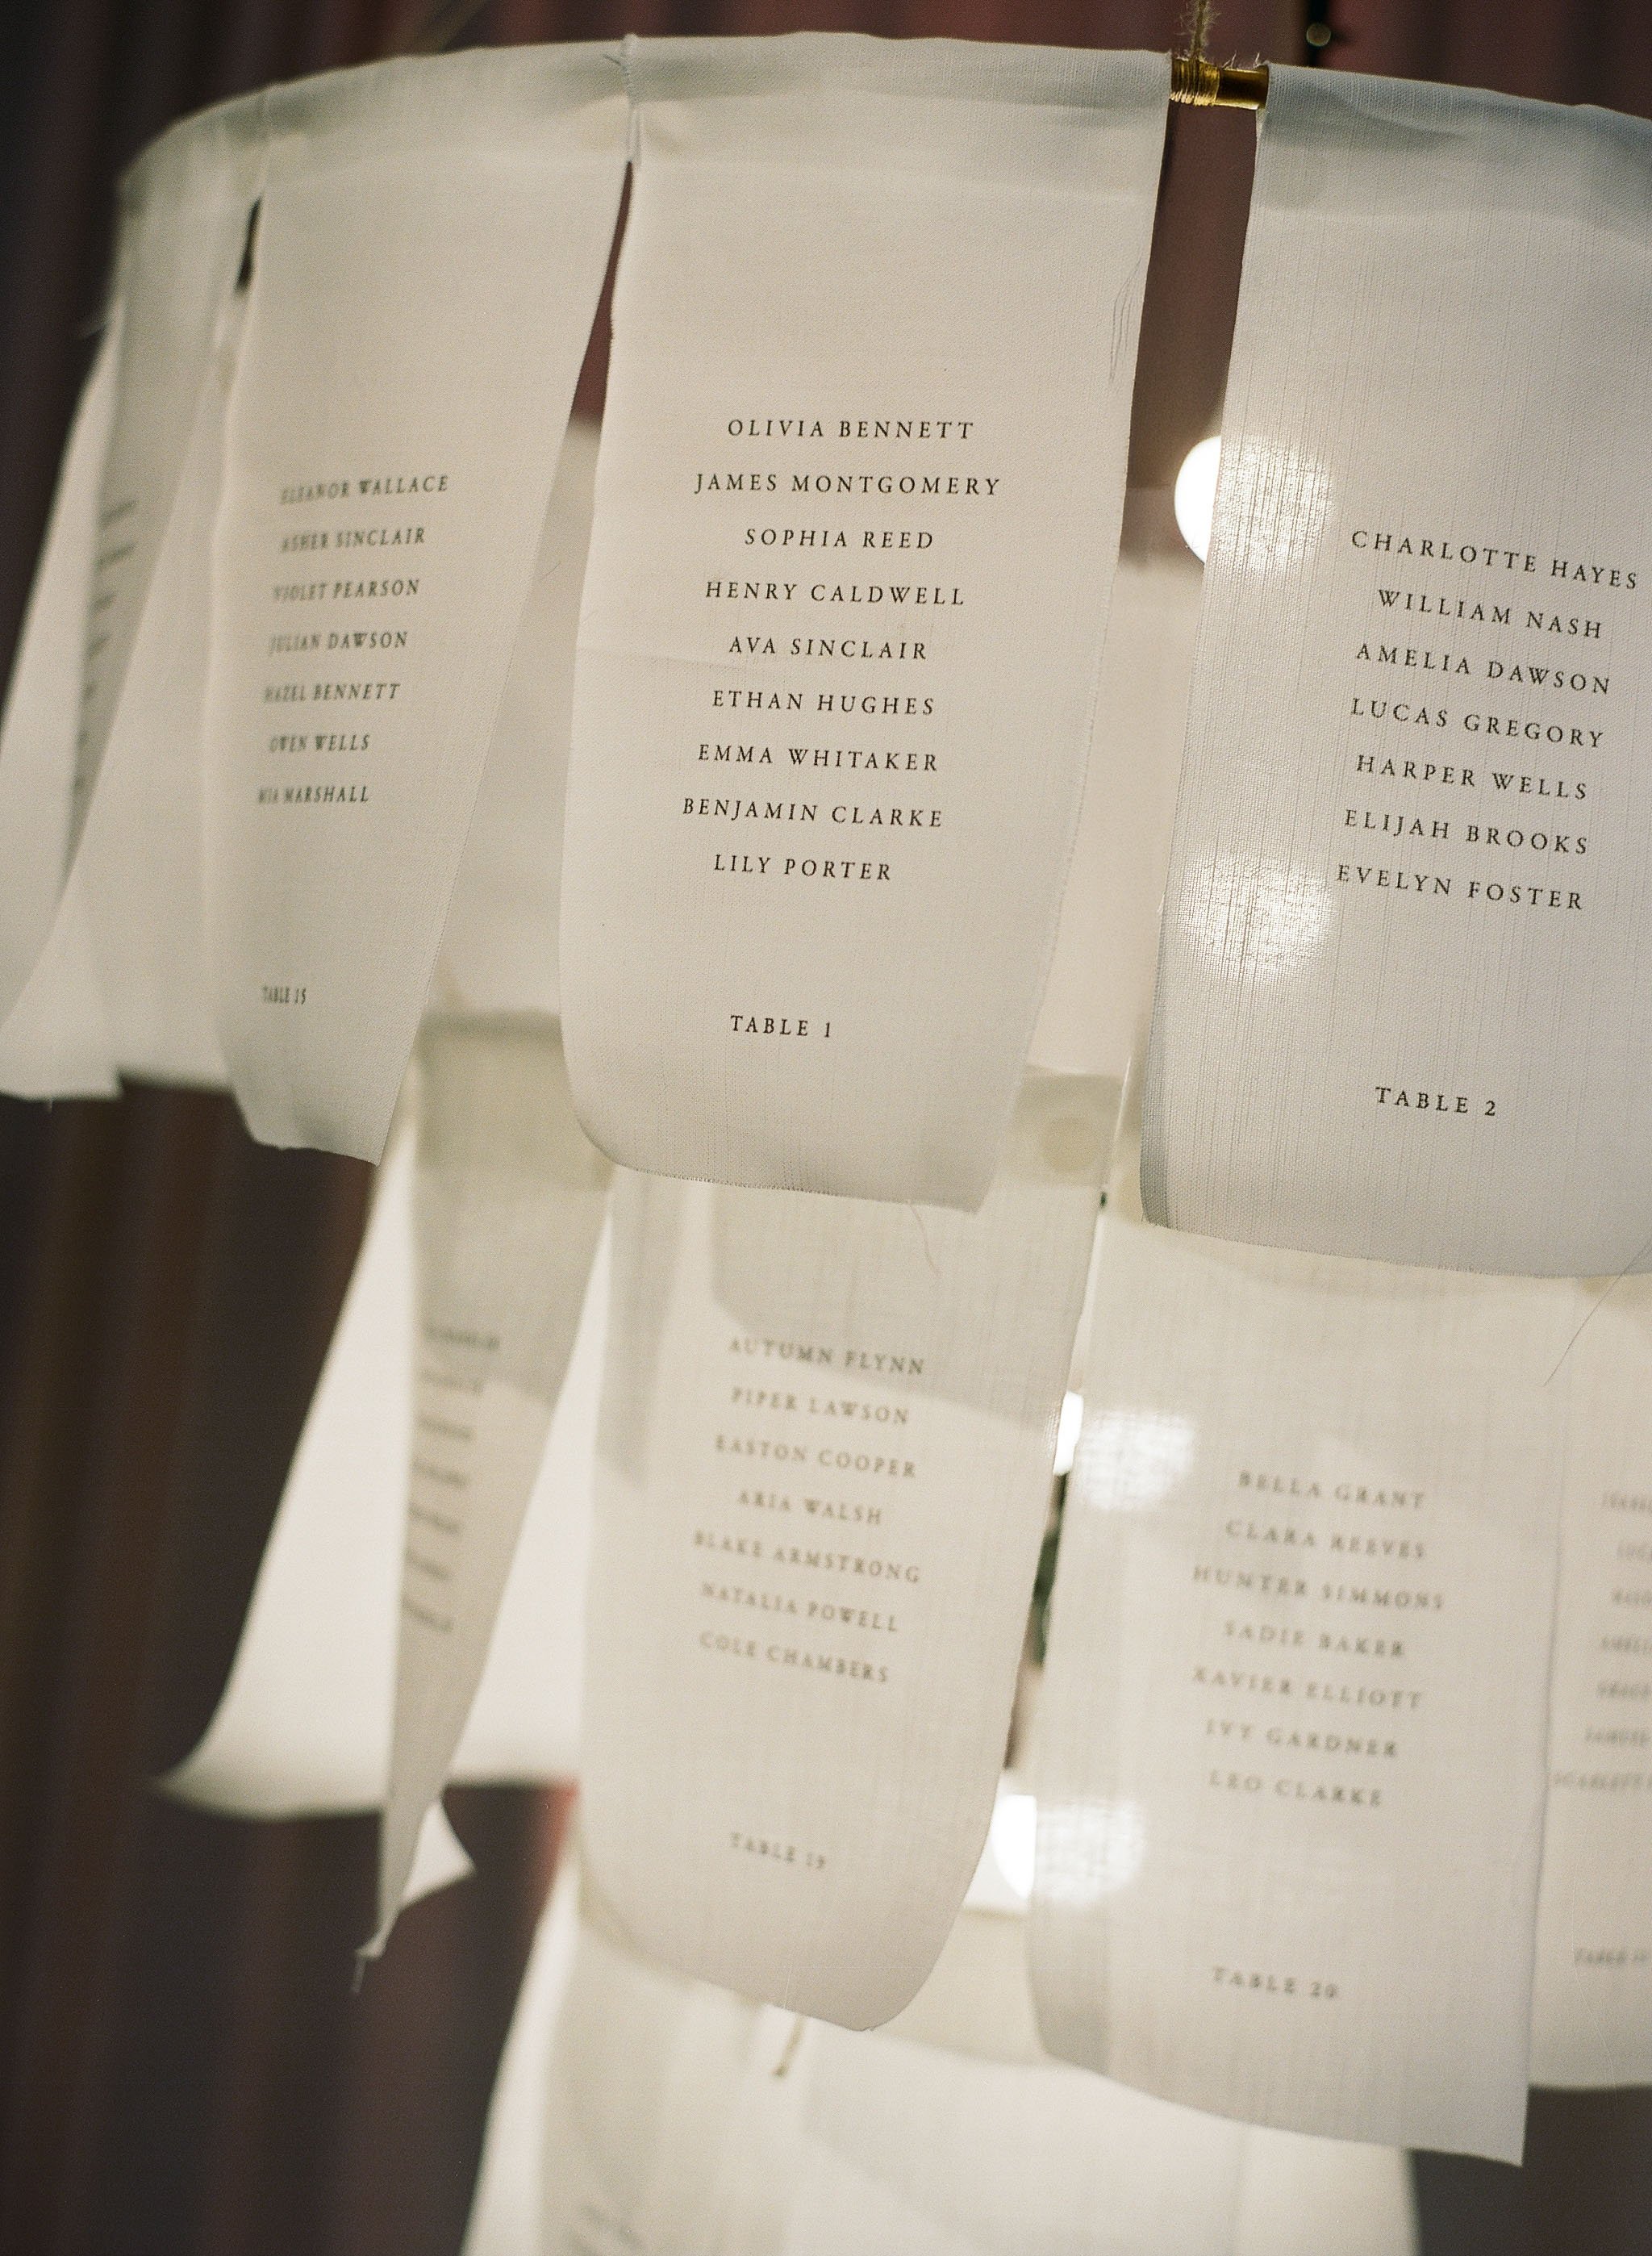 ELEANOR WALLACE
ASHER SINCLAIR
VIOLET PEARSON
JULIAN DAWSON
HAZEL BENNETT
OWEN WELLS
MIA MARSHALL
TABLE 15
OLIVIA BENNETT
JAMES MONTGOMERY
SOPHIA REED
HENRY CALDWELL
AVA SINCLAIR
ETHAN HUGHES
EMMA WHITAKER
BENJAMIN CLARKE
LILY PORTER
TABLE 1
CHARLOTTE HAYES
WILLIAM NASH
AMELIA DAWSON
LUCAS GREGORY
HARPER WELLS
ELIJAH BROOKS
EVELYN FOSTER
TABLE 2
AUTUMN FLYNN
PIPER LAWSON
EASTON COOPER
ARIA WALSH
BLAKE ARMSTRONG
NATALIA POWELL
COLE CHAMBERS
TABLE 19
BELLA GRANT
CLARA REEVES
HUNTER SIMMONS
SADIE BAKER
XAVIER ELLIOTT
IVY GARDNER
LEO CLARKE
TABLE 20
SCARLETT
TABLE